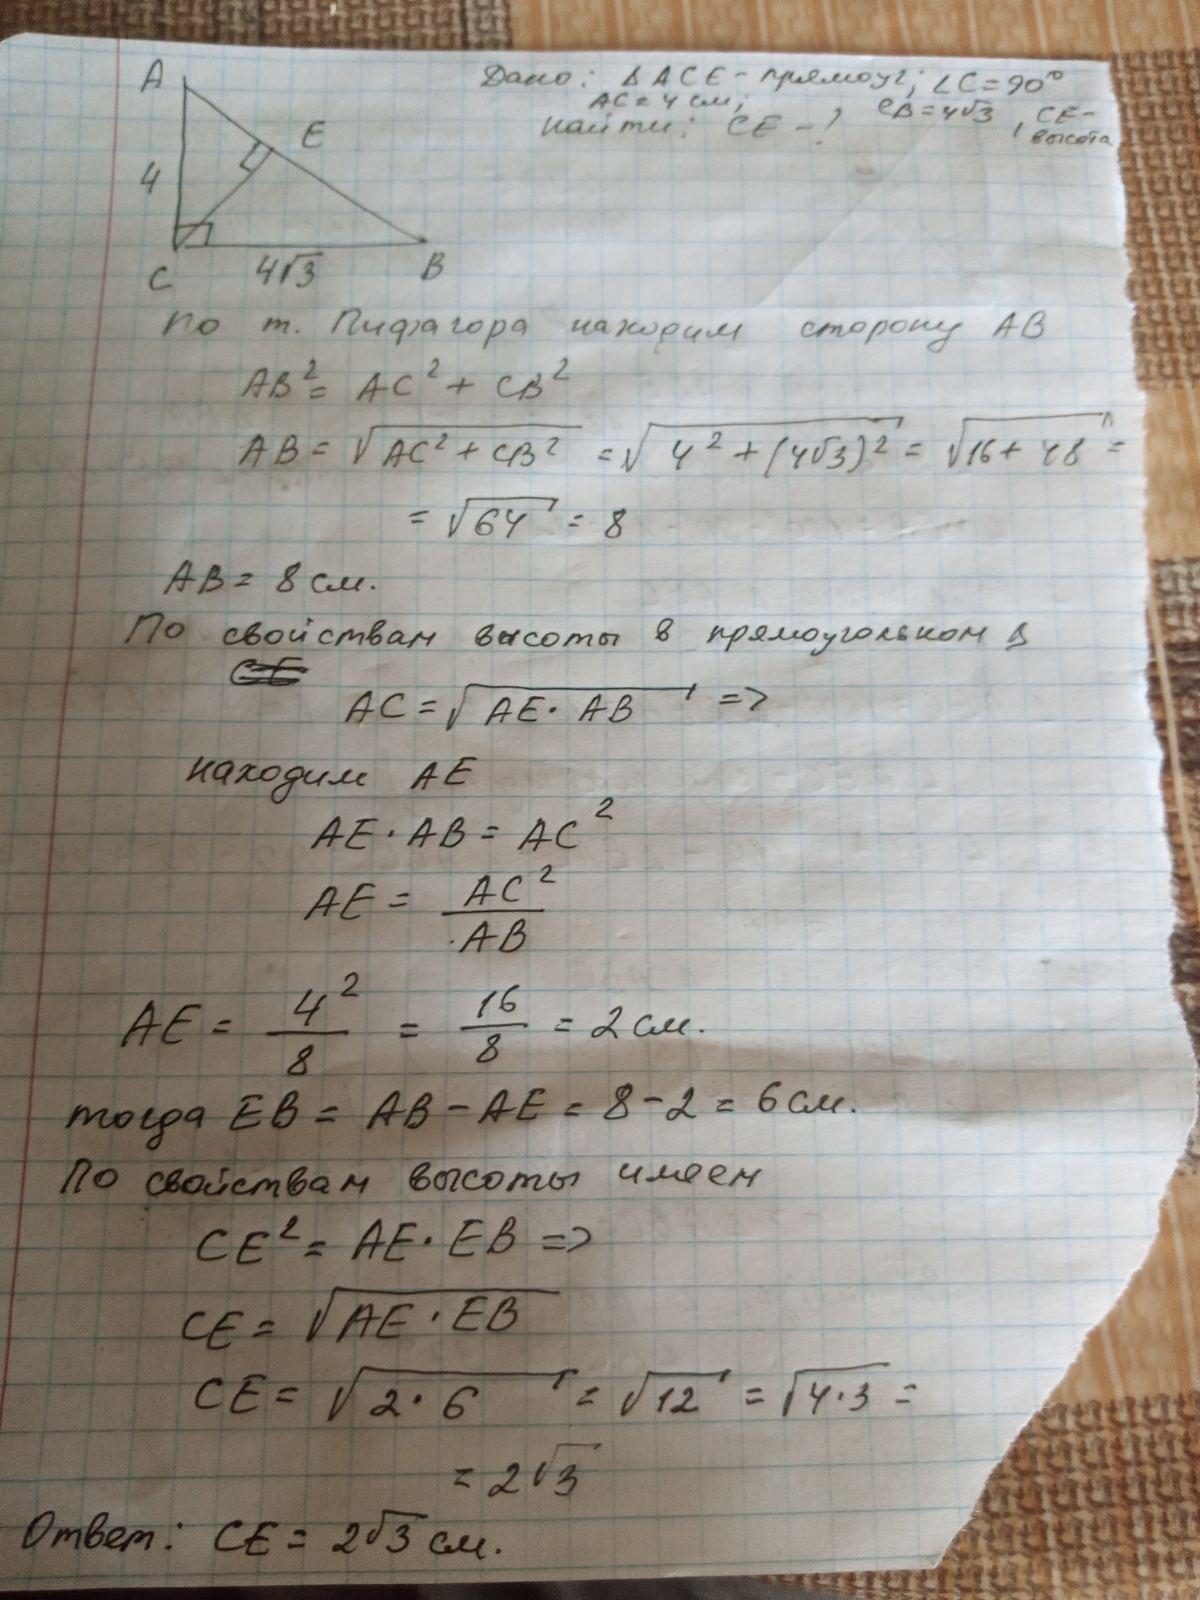 Дано: Δ ACE - прямоуг; ∠C=90°
AC=4 см; CB=4√3, CE-
Найти: CE - ? высота
A
E
4
C
4√3
B
По т. Пифагора находим сторону AB
AB² = AC² + CB²
AB = √AC² + CB² = √4² + (4√3)² = √16 + 48 =
= √64 = 8
AB = 8 см.
По свойствам высоты в прямоугольном Δ
AC = √AE · AB =>
находим AE
AE · AB = AC²
AE = AC²/AB
AE = 4²/8 = 16/8 = 2 см.
тогда EB = AB - AE = 8 - 2 = 6 см.
По свойствам высоты имеем
CE² = AE · EB =>
CE = √AE · EB
CE = √2 · 6 = √12 = √4·3 =
= 2√3
Ответ: CE = 2√3 см.